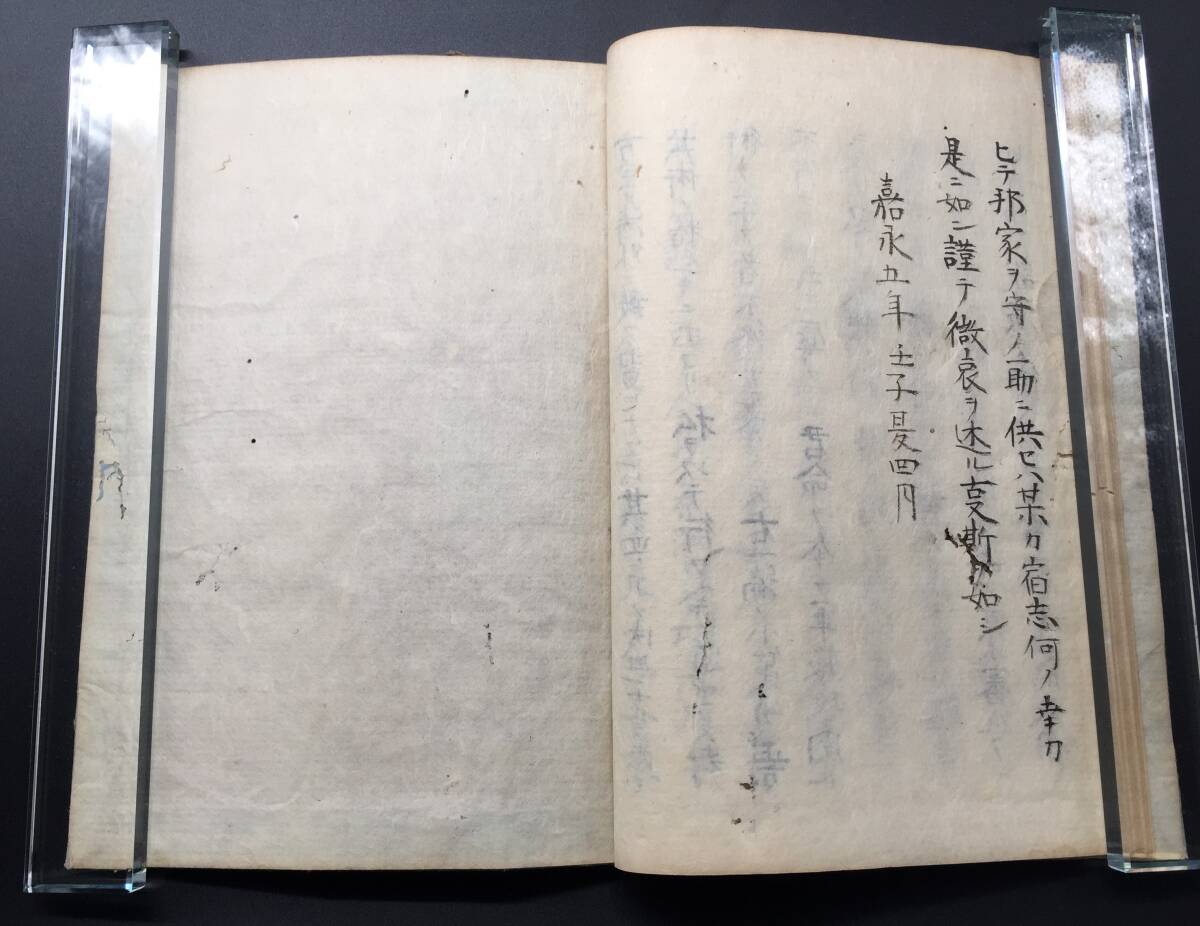 ヒテ邦家ヲ守ノ一助ニ供セハ某カ宿志何ノ幸カ
是ニ如ン謹テ微衷ヲ述ル叓斯ノ如シ
嘉永五年壬子夏四月